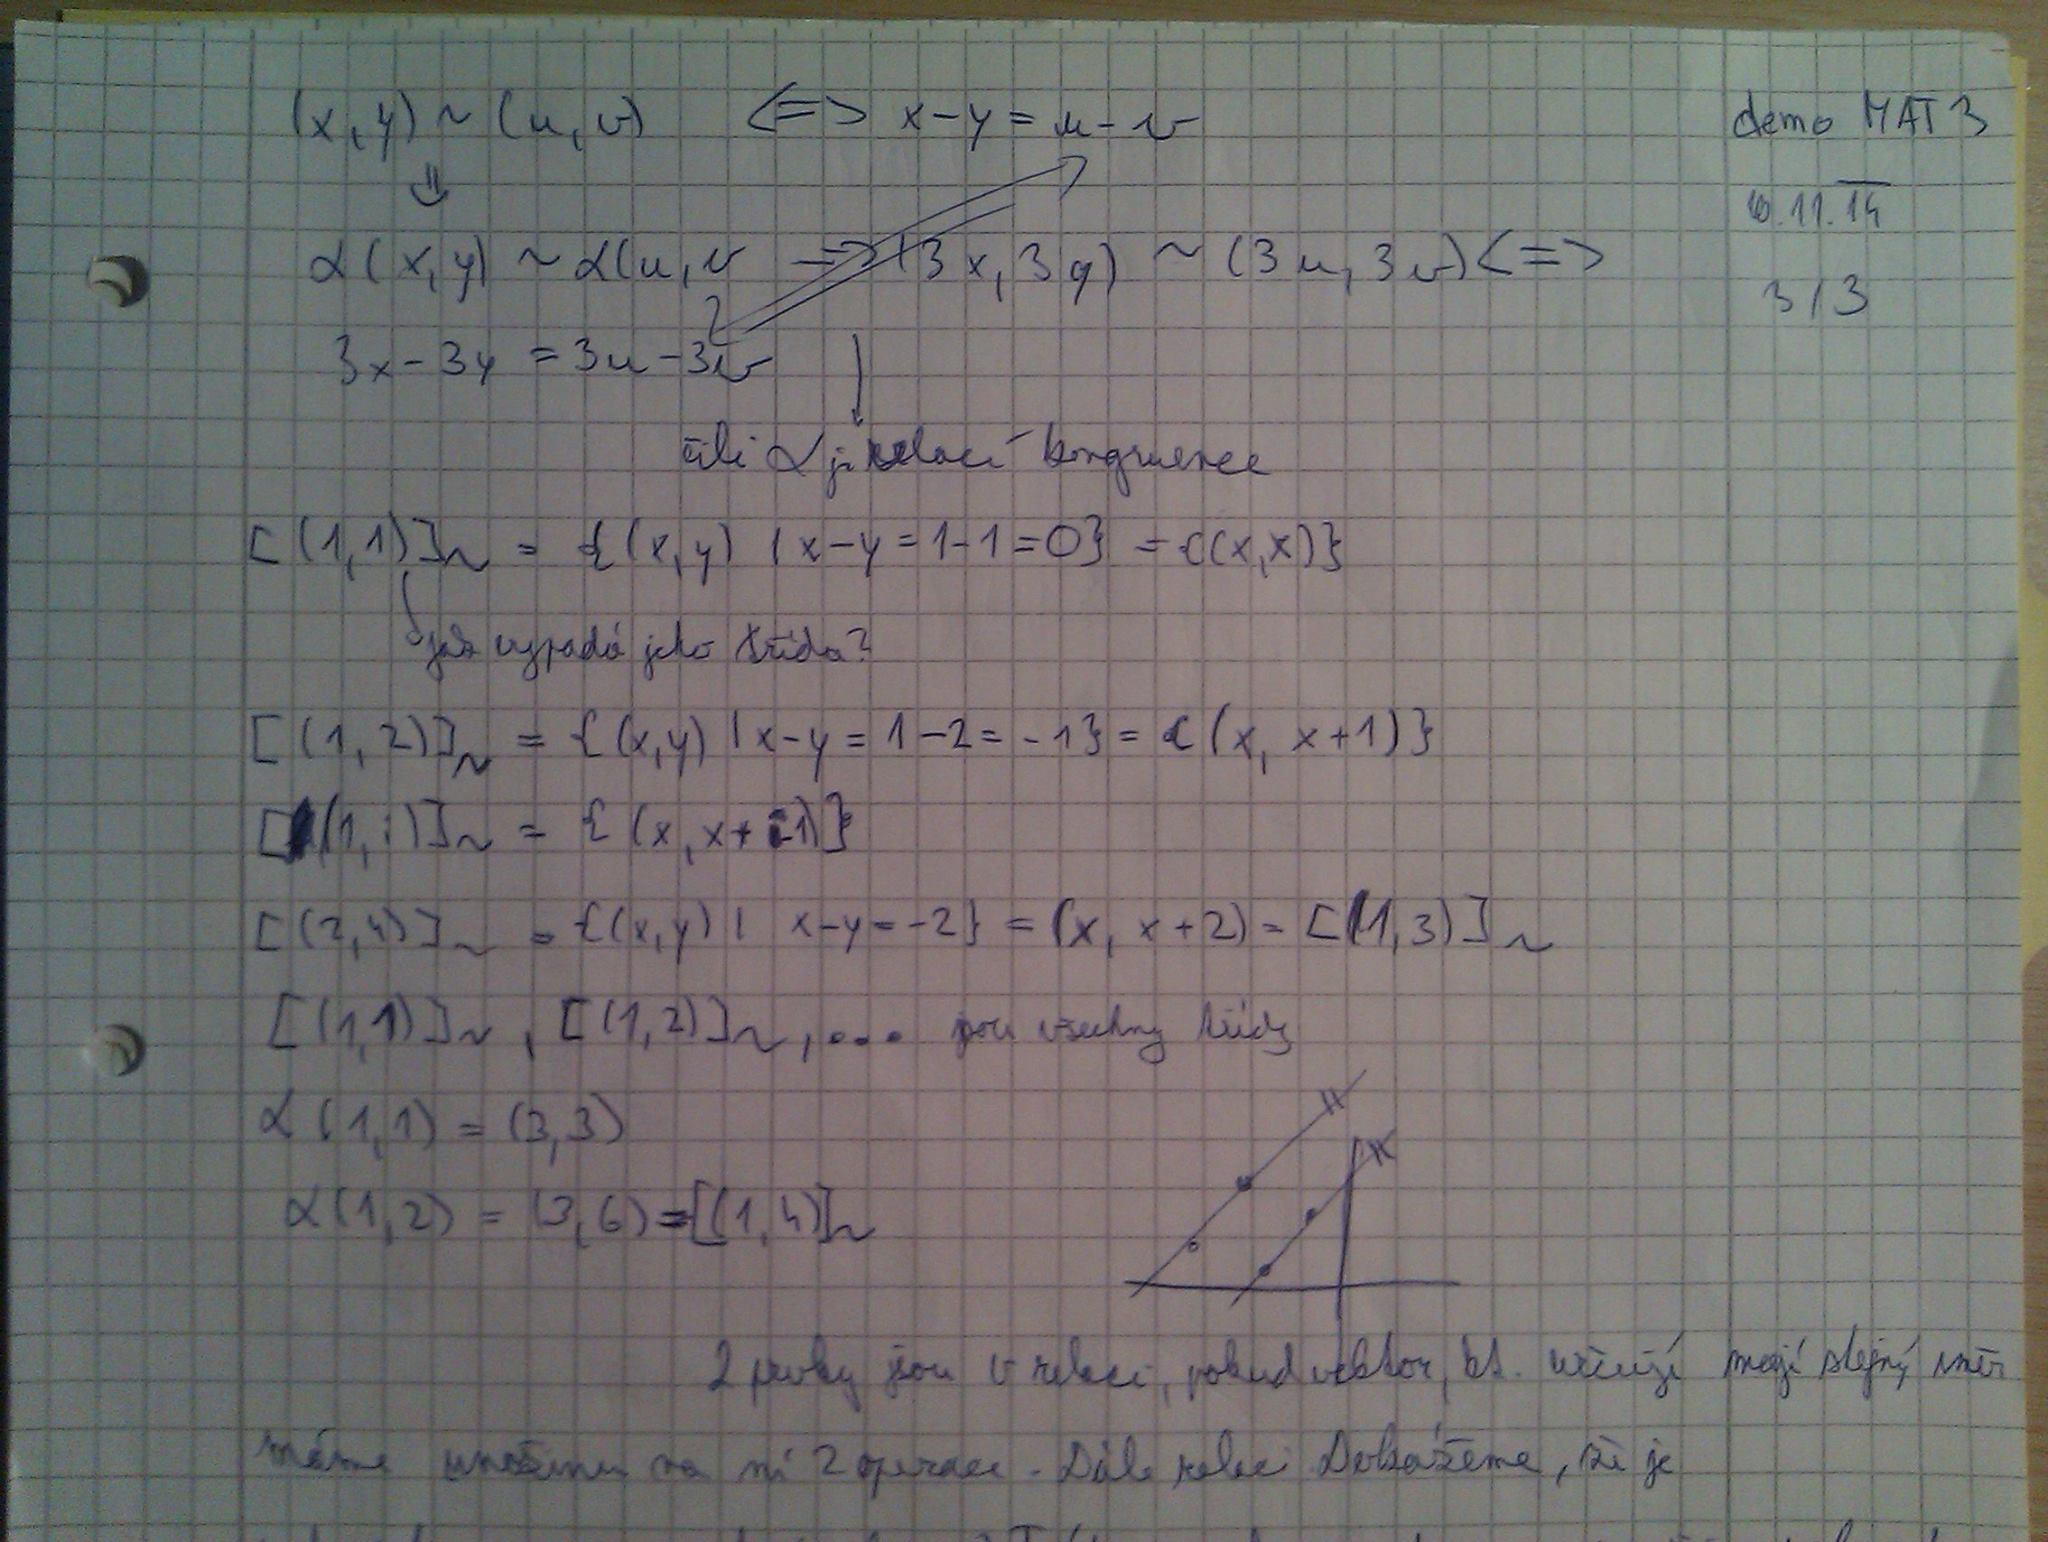 (x,y) ~ (u,v) <=> x-y = u-v
demo MAT 3
10.11.14
3/3
⇓
α(x,y) ~ α(u,v => (3x,3y) ~ (3u,3v) <=>
3x-3y = 3u-3v
čili α je relací kongruence
[(1,1)]~ = {(x,y) | x-y = 1-1 = 0} = {(x,x)}
jak vypadá jeho třída?
[(1,2)]~ = {(x,y) | x-y = 1-2 = -1} = {(x, x+1)}
[(1,i)]~ = {(x, x+i-1)}
[(2,4)]~ = {(x,y) | x-y = -2} = (x, x+2) = [(1,3)]~
[(1,1)]~, [(1,2)]~, ... jsou všechny třídy
α(1,1) = (3,3)
α(1,2) = (3,6) = [(1,4)]~
2 prvky jsou v relaci, pokud vektor, kt. určují mají stejný směr
máme množinu na ní 2 operace. Dále relaci Dokážeme, že je